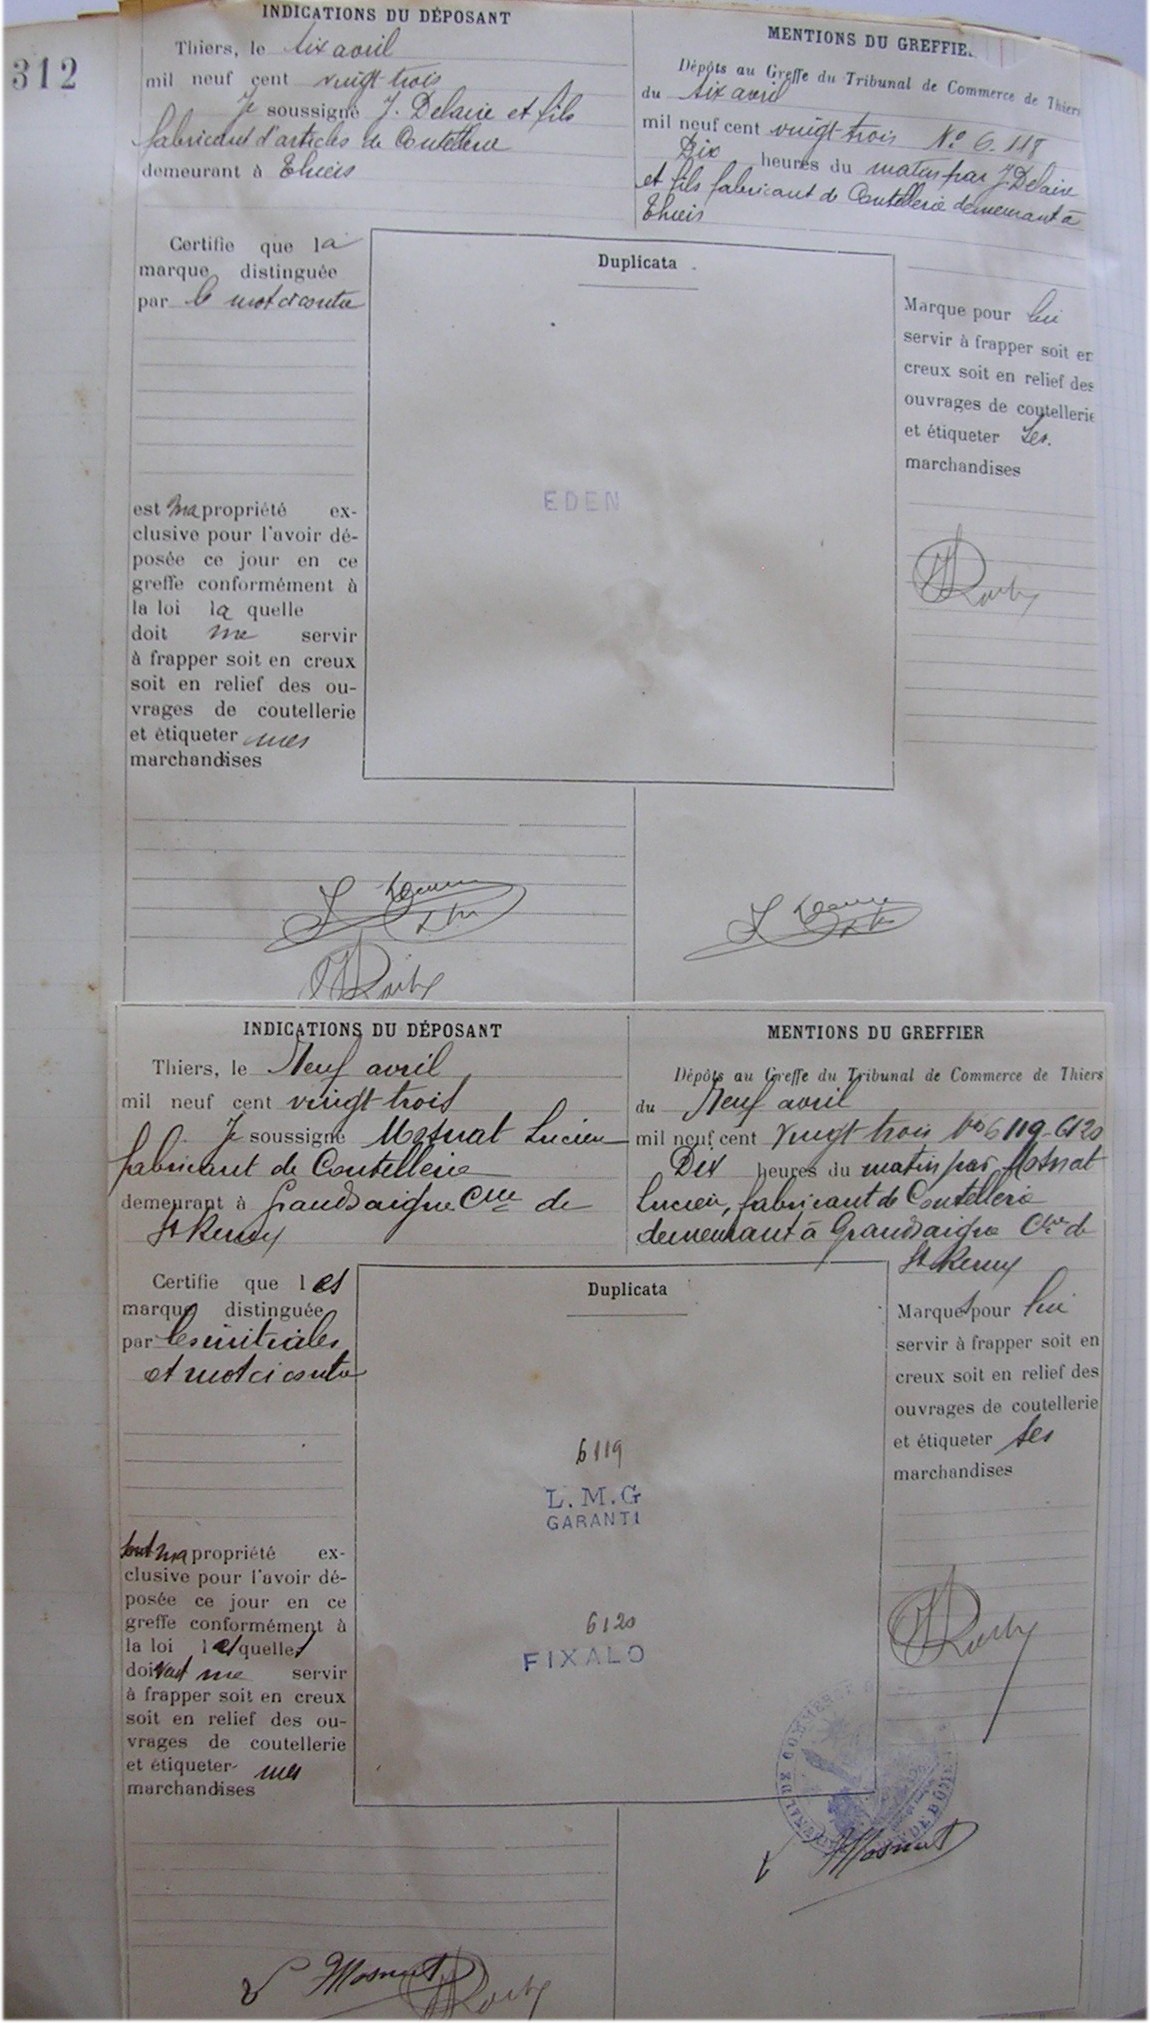 312
INDICATIONS DU DÉPOSANT
Thiers, le six avril
mil neuf cent vingt trois
Je soussigné J. Delaire et fils
fabricant d'articles de Coutellerie
demeurant à Thiers
MENTIONS DU GREFFIE
Dépôts au Greffe du Tribunal de Commerce de Thiers
du six avril
mil neuf cent vingt trois No 6.118
Dix heures du matin par J. Delaire
et fils fabricant de Coutellerie demeurant à
Thiers
Certifie que la
marque distinguée
par le mot ci contre
est ma propriété ex-
clusive pour l'avoir dé-
posée ce jour en ce
greffe conformément à
la loi la quelle
doit me servir
à frapper soit en creux
soit en relief des ou-
vrages de coutellerie
et étiqueter mes
marchandises
Duplicata
EDEN
Marque pour lui
servir à frapper soit en
creux soit en relief des
ouvrages de coutellerie
et étiqueter ses
marchandises
INDICATIONS DU DÉPOSANT
Thiers, le Neuf avril
mil neuf cent vingt trois
Je soussigné Mosnat Lucien
fabricant de Coutellerie
demeurant à Grandsaigne Cne de
St Remy
MENTIONS DU GREFFIER
Dépôts au Greffe du Tribunal de Commerce de Thiers
du Neuf avril
mil neuf cent vingt trois Nos 6119-6120
Dix heures du matin par Mosnat
Lucien, fabricant de Coutellerie
demeurant à Grandsaigne Cne de
St Remy
Certifie que les
marque distinguée
par les initiales
et mot ci contre
sont ma propriété ex-
clusive pour l'avoir dé-
posée ce jour en ce
greffe conformément à
la loi lesquelles
doivent me servir
à frapper soit en creux
soit en relief des ou-
vrages de coutellerie
et étiqueter mes
marchandises
Duplicata
6119
L.M.G
GARANTI
6120
FIXALO
Marques pour lui
servir à frapper soit en
creux soit en relief des
ouvrages de coutellerie
et étiqueter ses
marchandises
Mosnat
Mosnat